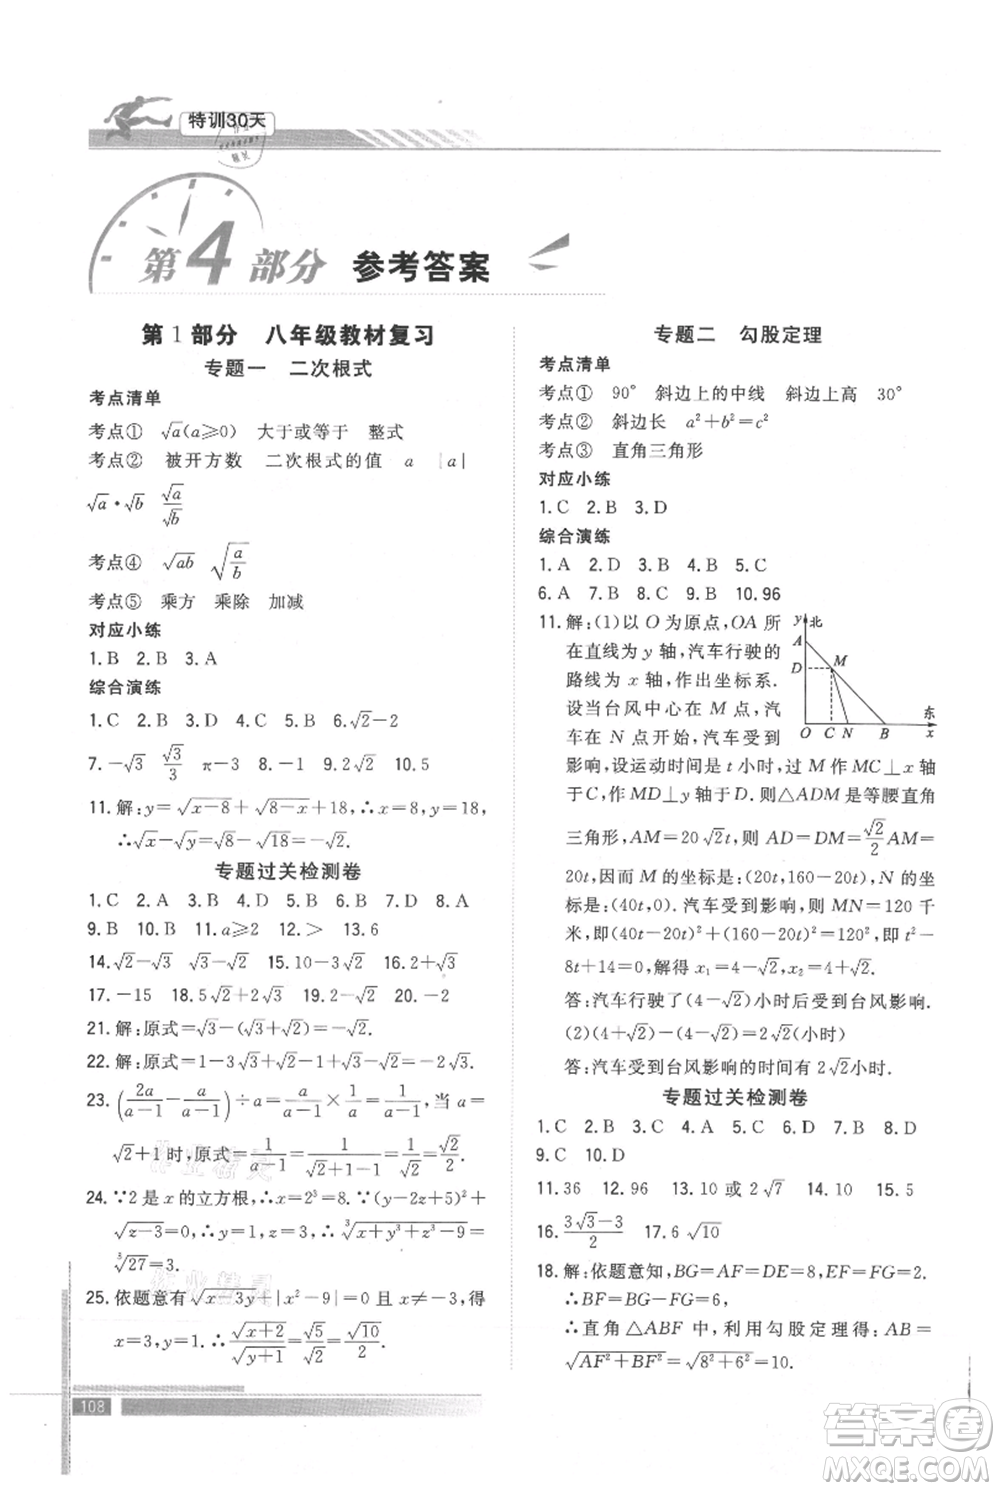 特训30天
第4部分 参考答案
第1部分 八年级教材复习
专题一 二次根式
考点清单
考点① √a(a⩾0) 大于或等于 整式
考点② 被开方数 二次根式的值 a |a|
√a·√b √a/√b
考点④ √ab √(a/b)
考点⑤ 乘方 乘除 加减
对应小练
1.B 2.B 3.A
综合演练
1.C 2.B 3.D 4.C 5.B 6.√2－2
7.－√3 √3/3 π－3 8.－1 9.2√2 10.5
11.解:y=√(x－8)+√(8－x)+18,∴x=8,y=18,
∴√x－√y=√8－√18=－√2.
专题过关检测卷
1.C 2.A 3.B 4.D 5.D 6.B 7.D 8.A
9.B 10.B 11.a⩾2 12.＞ 13.6
14.√2－√3 √3－√2 15.10 16.2+√3
17.－15 18.5√2+2√3 19.2 20.－√2
21.解:原式=√3－(√3+√2)=－√2.
22.解:原式=1－3√3+√2－1+√3－√2=－2√3.
23.(2a/(a－1)－a/(a－1))÷a=a/(a－1)×1/a=1/(a－1),当a=
√2+1时,原式=1/(a－1)=1/(√2+1－1)=1/√2=√2/2.
24.∵2是x的立方根,∴x=2³=8.∵(y－2z+5)²+
√(z－3)=0.∴y=1,z=3.∴³√(x+y³+z³－9)=
³√27=3.
25.依题意有√(x－3y)+|x²－9|=0且x≠－3,得
x=3,y=1,∴√(x+2)/√(y+1)=√5/√2=√10/2.
108
专题二 勾股定理
考点清单
考点① 90° 斜边上的中线 斜边上高 30°
考点② 斜边长 a²+b²=c²
考点③ 直角三角形
对应小练
1.C 2.B 3.D
综合演练
1.A 2.D 3.B 4.B 5.C
6.A 7.B 8.C 9.B 10.96
11.解:(1)以O为原点,OA所
在直线为y轴,汽车行驶的
路线为x轴,作出坐标系.
设当台风中心在M点,汽
车在N点开始,汽车受到影
y 北
A
D M
东
O C N B x
响,设运动时间是t小时,过M作MC⊥x轴
于C,作MD⊥y轴于D.则△ADM是等腰直角
三角形,AM=20√2t,则AD=DM=√2/2AM=
20t,因而M的坐标是:(20t,160－20t),N的坐
标是:(40t,0).汽车受到影响,则MN=120千
米,即(40t－20t)²+(160－20t)²=120²,即t²－
8t+14=0,解得x₁=4－√2,x₂=4+√2.
答:汽车行驶了(4－√2)小时后受到台风影响.
(2)(4+√2)－(4－√2)=2√2(小时)
答:汽车受到台风影响的时间有2√2小时.
专题过关检测卷
1.C 2.B 3.C 4.A 5.D 6.C 7.B 8.D
9.C 10.D
11.36 12.96 13.10或2√7 14.15 15.5
16.(3√3－3)/2 17.6 √10
18.解:依题意知,BG=AF=DE=8,EF=FG=2.
∴BF=BG－FG=6,
∴直角△ABF中,利用勾股定理得:AB=
√(AF²+BF²)=√(8²+6²)=10.
答案圈
MXQE.COM